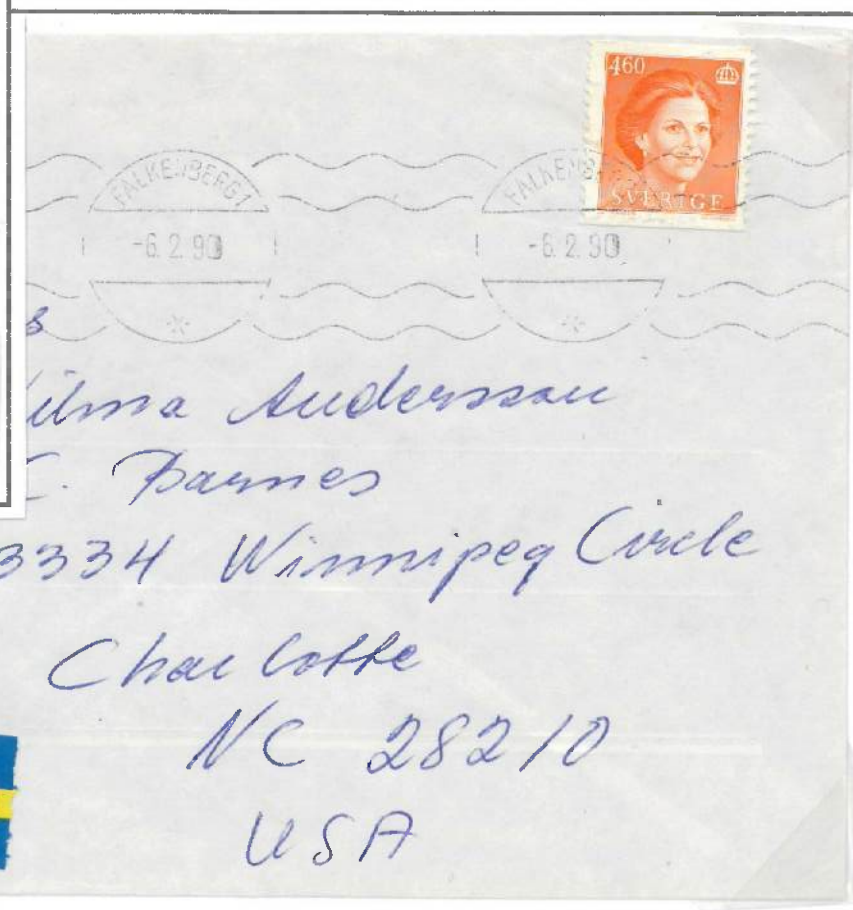 460
SVERIGE
FALKENBERG 1
-6.2.90
FALKENB
-6.2.90
s
ilma Andersson
C. Barnes
3334 Winnipeg Circle
Charlotte
NC 28210
USA